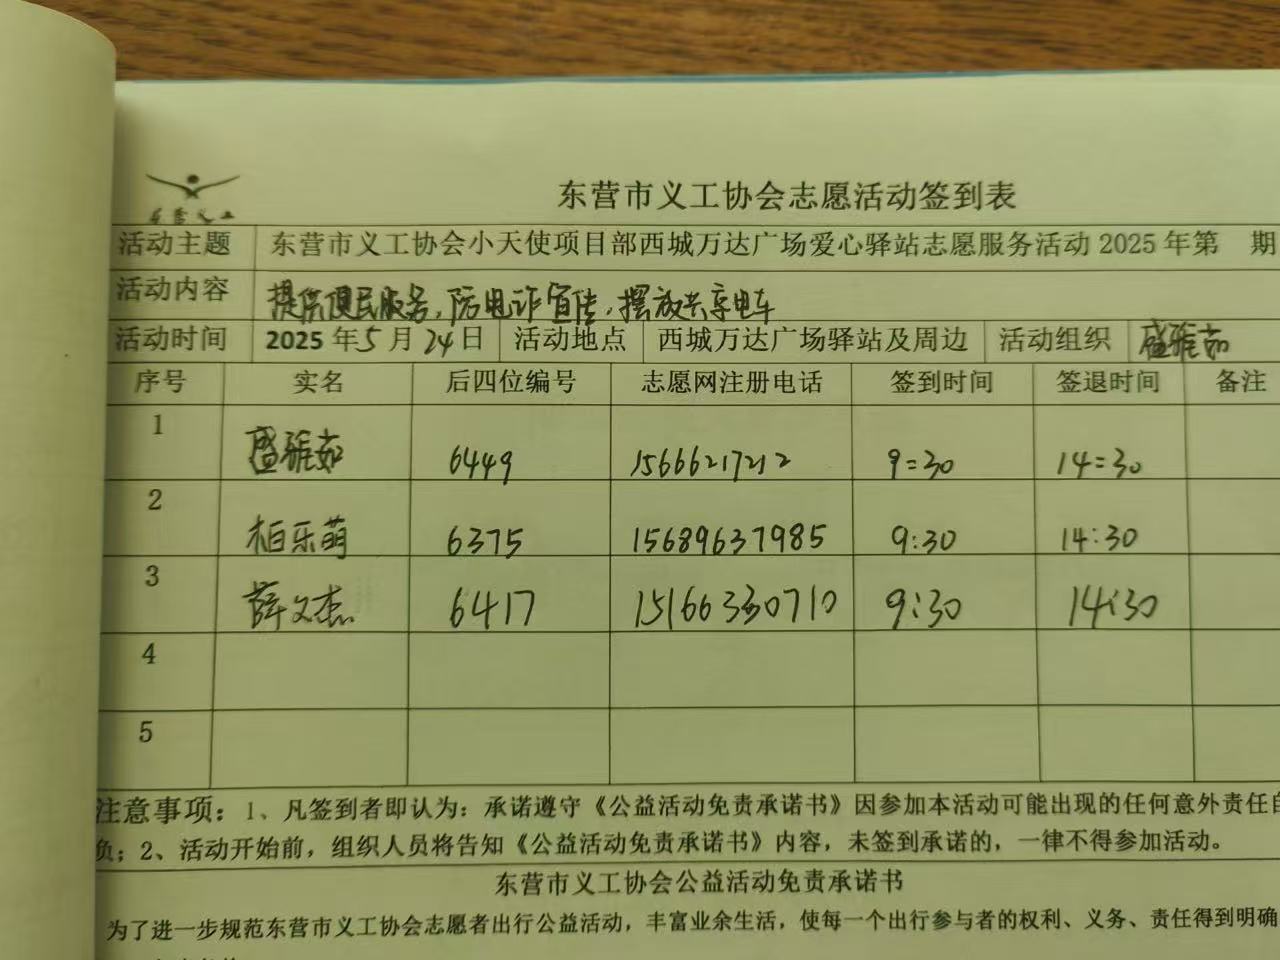 东营义工
东营市义工协会志愿活动签到表
活动主题 东营市义工协会小天使项目部西城万达广场爱心驿站志愿服务活动 2025 年第 期
活动内容 提供便民服务,防电诈宣传,摆放共享电车
活动时间 2025 年5月24日 活动地点 西城万达广场驿站及周边 活动组织 盛雅茹
序号 实名 后四位编号 志愿网注册电话 签到时间 签退时间 备注
1 盛雅茹 6449 15666217212 9:30 14:30
2 柏乐萌 6375 15689637985 9:30 14:30
3 薛文杰 6417 15166330710 9:30 14:30
4
5
注意事项:1、凡签到者即认为:承诺遵守《公益活动免责承诺书》因参加本活动可能出现的任何意外责任自
负;2、活动开始前,组织人员将告知《公益活动免责承诺书》内容,未签到承诺的,一律不得参加活动。
东营市义工协会公益活动免责承诺书
为了进一步规范东营市义工协会志愿者出行公益活动,丰富业余生活,使每一个出行参与者的权利、义务、责任得到明确